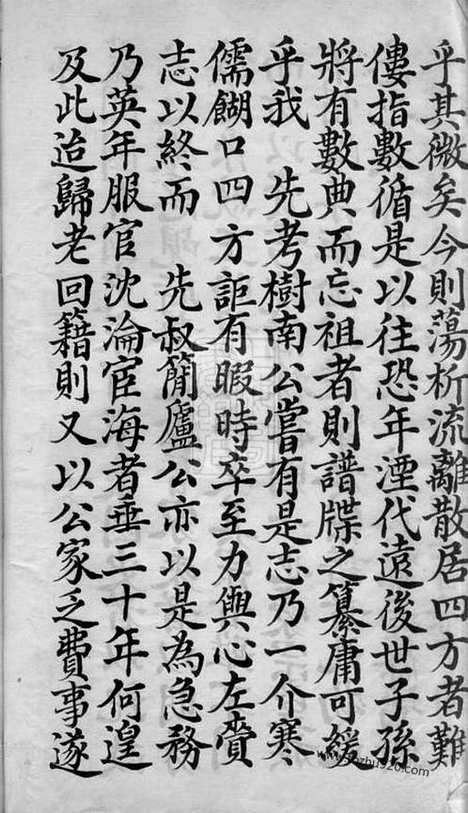 乎其微矣今則蕩析流離散居四方者難
僂指數循是以往恐年湮代遠後世子孫
將有數典而忘祖者則譜牒之纂庸可緩
乎我 先考樹南公嘗有是志乃一介寒
儒餬口四方詎有暇時卒至力與心左賫
志以終而 先叔簡廬公亦以是為急務
乃英年服官沈淪宦海者垂三十年何遑
及此迨歸老回籍則又以公家乏費事遂